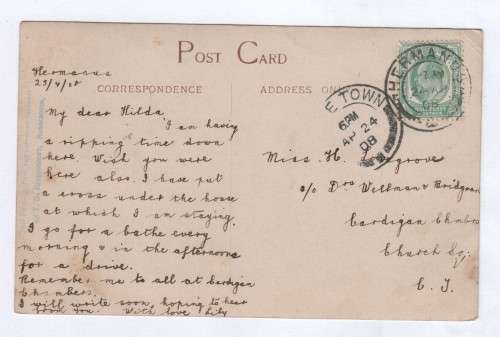 POST CARD
CORRESPONDENCE
ADDRESS ON
Hermanus
23/4/08
My dear Hilda,
I am having
a ripping time down
here. Wish you were
here also. I have put
a cross under the house
at which I am staying.
I go for a bathe every
morning & in the afternoons
for a drive.
Remember me to all at Cardigan
Chambers.
I will write soon, hoping to hear
from you. With love Lily
HERMANU
E TOWN
6 PM
AP 24
08
Miss H. grove
c/o Drs Wellman & Bridgman
Cardigan Chmbrs
Church Sq.
C. T.